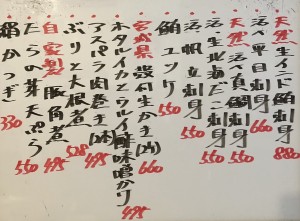 天然 生インド鮪刺身 880
活〆平目刺身 660
天然 活〆真鯛刺身 550
活 生北海だこ刺身 550
活 帆立刺身 550
鮪ユッケ 550
宮城県 殻付生かき(ポン) 660
ホタルイカとウルイ酢味噌がけ 495
アスパラ肉巻き(2本) 495
ぶりと大根煮 528
自家製 豚角煮 495
たらの芽天ぷら 550
絹かつぎ 330